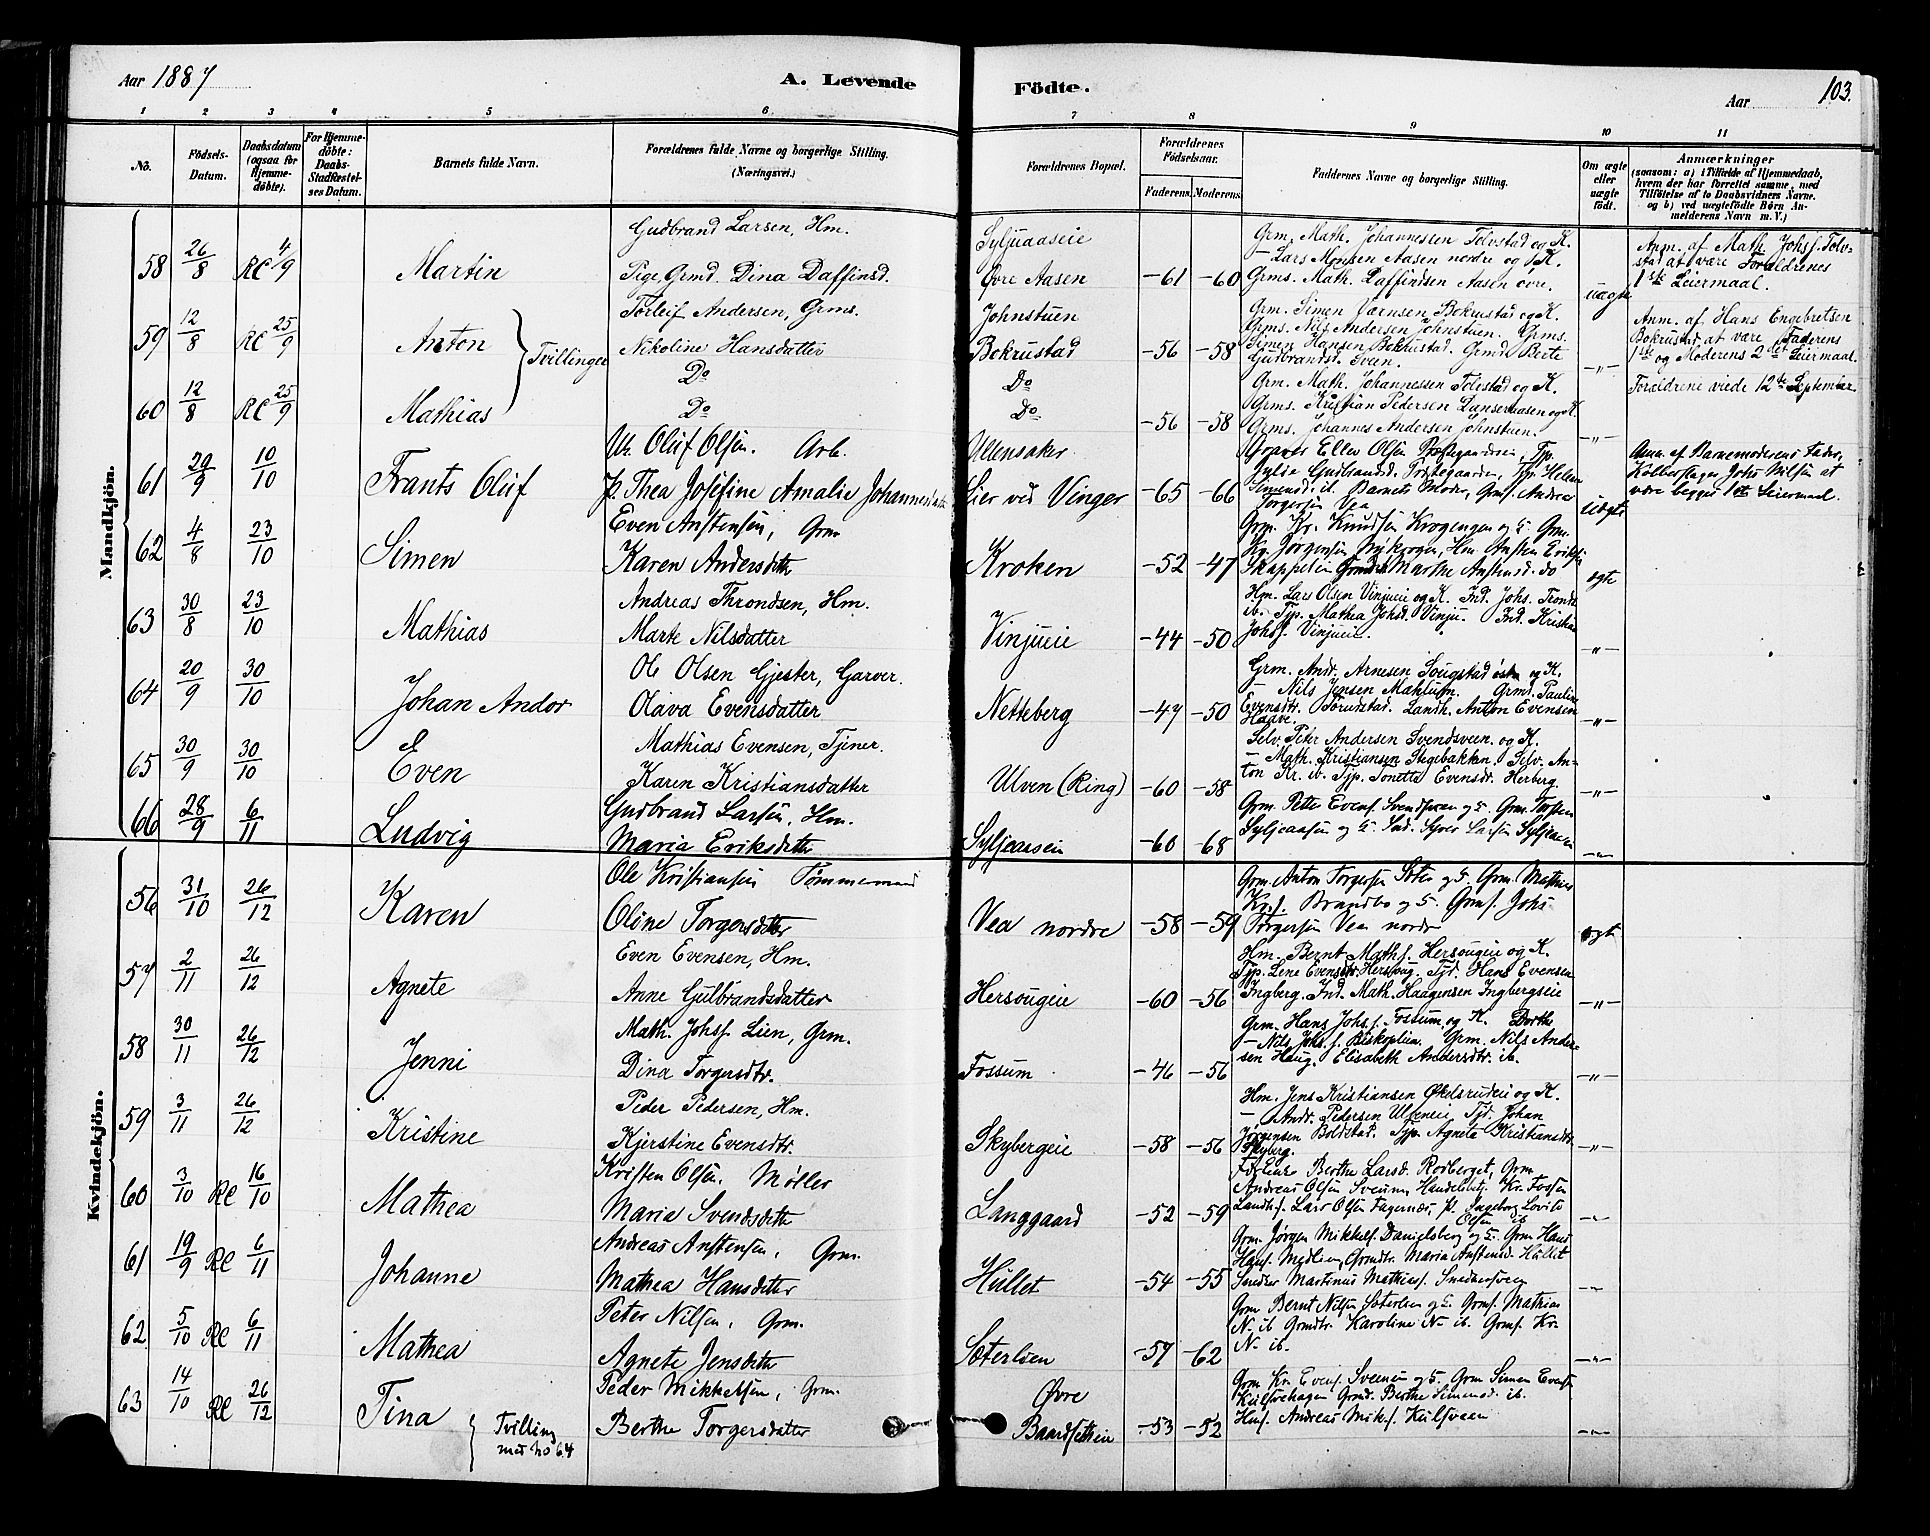 Aar 1887 A. Levende Födte. Aar 103.
1 2 3 4 5 6 7 8 9 10 11
No. Födsels-Datum. Daabsdatum (ogsaa for Hjemmedöbte). For Hjemmedöbte: Daabs-Stadfæstelses Datum. Barnets fulde Navn. Forældrenes fulde Navne og borgerlige Stilling. (Næringsvei.) Forældrenes Bopæl. Forældrenes Födselsaar. Faderens. Moderens. Faddernes Navne og borgerlige Stilling. Om ægte eller uægte født. Anmærkninger (saasom: a) i Tilfælde af Hjemmedaab, hvem der har forrettet samme, med Tilföielse af to Daabsvidners Navne. og b) ved uægtefödte Börn Anmelderens Navn m. V.)
Mandkjön.
58 26/8 RC 4/9 Martin
Gudbrand Larsen, Hm.
Pige, Grmd. Dina Daffinsd.
Syljuaaseie
Øvre Aasen -61 -60
Grm. Math. Johannessen Tolvstad og K.
- Lars Monsen Aasen nordre og K.
Grms. Math. Daffindsen Aasen øvre. uægte
Anm. af Math. Johsf. Tolvstad at være Forældrenes
1ste Leiermaal.
59 12/8 RC 25/9 Anton Tvillinger
Torleif Andersen, Grms.
Nikoline Hansdatter
Johnstuen
Bokrustad -56 -58
Grm. Simen Bokrustad og K.
Grms. Nils Andersen Johnstuen. Grms.
Simen Hansen Bokrustad. Grmd. Berte
Gudbrandsd. Sveen. -"-
Anm. af Hans Engebretsen
Bokrustad at være Faderens
1ste og Moderens 2det Leiermaal.
60 12/8 RC 25/9 Mathias
Do
Do
Do
Do -56 -58
Grm. Math. Johannessen Tolvstad og K.
Grms. Kristian Pedersen og K.
Grms. Johannes Andersen Johnstuen. -"-
Forældrene viede 12te September.
61 29/9 10/10 Frants Oluf
U. Oluf Olsen. Arb.
P. Thea Josefine Amalie Johannesdatter
Ullensaker
Lier ved Vinger -65 -66
Ellen Olsen Tjp.
Gudbrandsd. Præstegaarden, Tjp. Helene
Simensd. ib. Barnets Moder, Grmf. Andreas
Torgersen Vea uægte
Anm. af Barnemoderens Fader,
Johs Nilsen at
være begges 1ste Leiermaal.
62 4/8 23/10 Simen
Even Anstensen, Grm
Karen Andersdtter
Kroken -52 -47
Grm. Kr. Knudsen Krogengen og K. Grm.
Kr. Jørgensen Hm Ansten Eriksen
Skappelen Grmd. Marthe Anstensd. do ægte
63 30/8 23/10 Mathias
Andreas Throndsen, Hm.
Marte Nilsdatter
Vinjueie -44 -50
Hm. Lars Olsen Vinjueie og K. Ind. Johs. Trondsen
ib. Tjp. Mathea Johsd. Vinju. Ind. Kristian
Johsf. Vinjueie. -"-
64 20/9 30/10 Johan Andor
Ole Olsen Gjester, Garver.
Olava Evensdatter
Netteberg -47 -50
Grm. Andr. Arnesen Sougstad østre og K.
- Nils Jensen Grmd. Pauline
Evensdtr. Landh. Anton Evensen
Haave. -"-
65 30/9 30/10 Even
Mathias Evensen, Tjener.
Karen Kristiansdatter
Ulven (Ring) -60 -58
Selv. Peter Andersen Svendsveen og K.
- Math. Kristiansen Stegebakken. Selv. Anton
Kr. ib. Tjp. Tonette Evensdr. Herberg. -"-
66 28/9 6/11 Ludvig
Gudbrand Larsen, Hm.
Maria Eriksdtter
Syljeaaseie -60 -68
Grm. Petter Evens. Svendsveen og K. Grm. Torsten
Syljeaasen og K. Ind. Syver Larsen Syljeaasen -"-
Kvindekjön.
56 31/10 26/12 Karen
Ole Kristiansen Tømmermand
Oline Torgersdtter
Vea nordre -58 -59
Grm. Anton Torgersen og K. Grm. Mathias
Krs. Brandbo og K. Grmf. Johs
Torgersen Vea nordre ægte
57 2/11 26/12 Agnete
Even Evensen, Hm.
Anne Gulbrandsdatter
Hersougeie -60 -56
Hm. Bernt Mathf. Hersougeie og K.
Tjp. Lene Evensdtr. Hersoug. Tjd. Hans Evensen
Ingberg. Ind. Math. Haagensen Ingbergseie -"-
58 30/11 26/12 Jenni
Math. Johsf. Lien, Grm.
Dina Torgersdtr.
Fossum -46 -56
Grm. Hans Johsf. Fossum og K. Dorthe
- Nils Johsf. Biskoplien. Grm. Nils Andersen
Haug. Elisabeth Andersdtr. ib. -"-
59 3/11 26/12 Kristine
Peder Pedersen, Hm.
Kjerstine Evensdtr.
Skybergeie -58 -56
Hm. Jens Kristiansen Økelsrudeie og K.
- Andr. Pedersen Ulfeneie, Tjd. Johan
Jørgensen Boldstad. Tjp. Agnete Kristiansdtr.
Skyberg. -"-
60 3/10 RC 16/10 Mathea
Kristen Olsen. Møller
Maria Svendsdtter
Langgaard -52 -59
Berthe Larsd. Rodberget, Grm.
Andreas Olsen Sveum, Handelsbetj. Kr. Fossen
Landhf. Lars Olsen Fagernæs, P. Ingeborg Lovise
Olsen ib -"-
61 19/9 RC 6/11 Johanne
Andreas Anstensen, Grm.
Mathea Hansdtter
Hullet -54 -55
Grm. Jørgen Mikkels. Danielsberg og K. Grm. Hans
Hansf. Medlien, Grmdtr. Maria Anstensd. Hullet
Snedker Martinus Mathiesf. Snedkersveen -"-
62 5/10 RC 6/11 Mathea
Peter Nilsen, Grm.
Agnete Jensdtter
Sæterlien -57 -62
Grm Bernt Nilsen Sæterlien og K. Grmf. Mathias
N- ib Grmdtr. Karoline N- ib. Grmf. Kr.
N- ib. -"-
63 14/10 RC 26/12 Tina Tvilling med No 64
Peder Mikkelsen, Grm.
Berthe Torgersdatter
Øvre
Baardsetheie -53 -52
Grm Kr. Evens. Sveen og K. Grm Simen Evens.
Grmd. Berthe Simensd. ib.
Andreas Mik. Kulsveen -"-